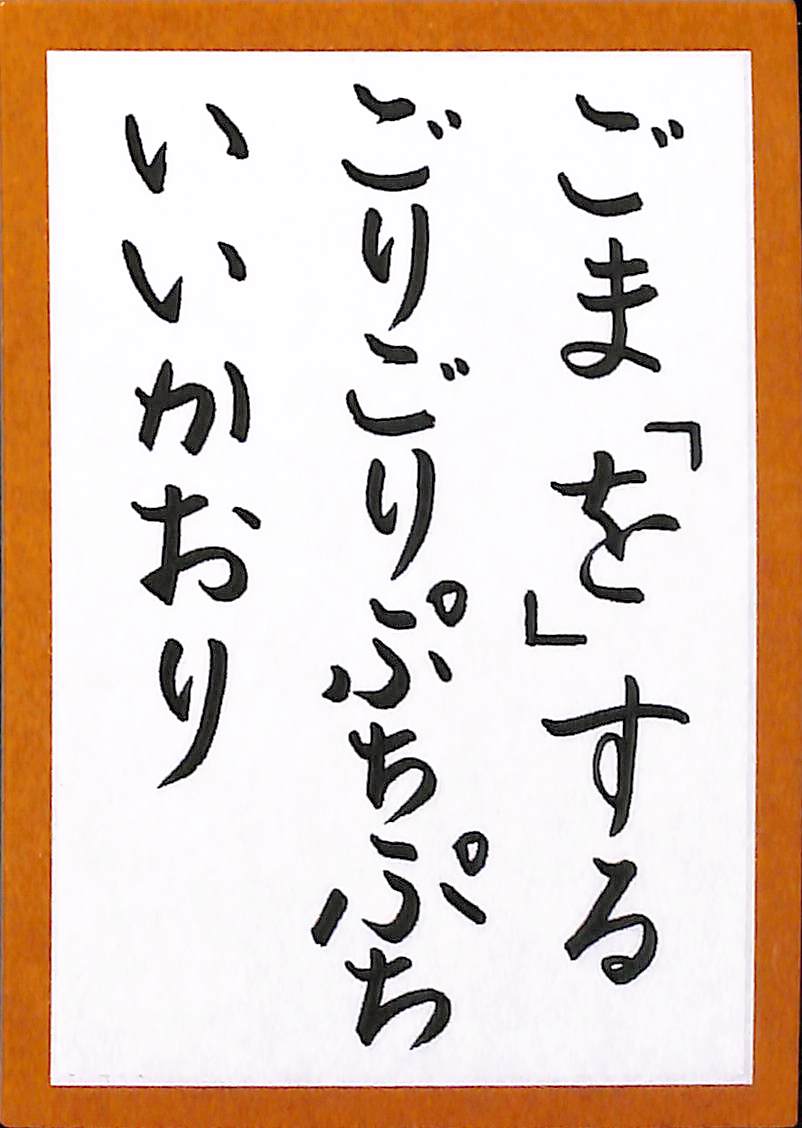 ごま「を」する
ごりごりぷちぷち
いいかおり